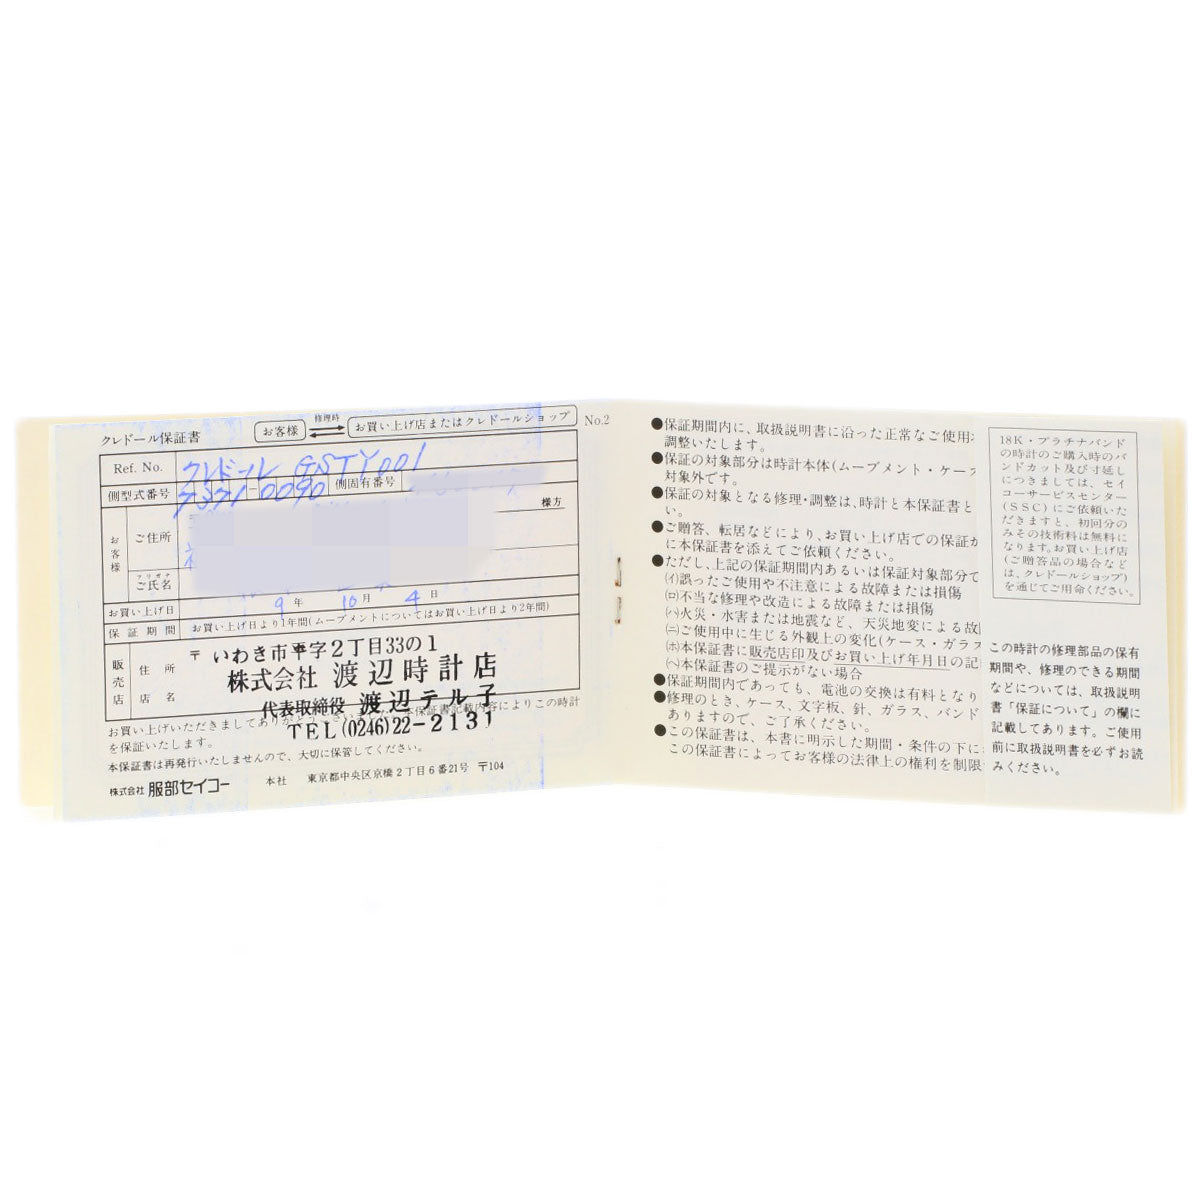 クレドール保証書
お客様
修理時
お買い上げ店またはクレドールショップ
No.2
Ref. No.
クレドール GSTY001
側型式番号
7371-0090
側固有番号
お客様
ご住所
様方
フリガナ
ご氏名
お買い上げ日
9年 10月 4日
保証期間
お買い上げ日より1年間(ムーブメントについてはお買い上げ日より2年間)
販売店
住所
店名
〒
いわき市平字2丁目33の1
株式会社 渡辺時計店
代表取締役 渡辺テル子
TEL(0246)22-2131
お買い上げいただきましてありがとうございました 本保証書記載内容によりこの時計
を保証いたします。
本保証書は再発行いたしませんので、大切に保管してください。
株式会社 服部セイコー 本社 東京都中央区京橋2丁目6番21号 〒104
●保証期間内に、取扱説明書に沿った正常なご使用
調整いたします。
●保証の対象部分は時計本体(ムーブメント・ケース
対象外です。
●保証の対象となる修理・調整は、時計と本保証書と
い。
●ご贈答、転居などにより、お買い上げ店での保証が
に本保証書を添えてご依頼ください。
●ただし、上記の保証期間内あるいは保証対象部分で
(イ)誤ったご使用や不注意による故障または損傷
(ロ)不当な修理や改造による故障または損傷
(ハ)火災・水害または地震など、天災地変による故
(ニ)ご使用中に生じる外観上の変化(ケース・ガラス
(ホ)本保証書に販売店印及びお買い上げ年月日の記
(ヘ)本保証書のご提示がない場合
●保証期間内であっても、電池の交換は有料となり
●修理のとき、ケース、文字板、針、ガラス、バンド
ありますので、ご了承ください。
●この保証書は、本書に明示した期間・条件の下に
この保証書によってお客様の法律上の権利を制限
18K・プラチナバンド
の時計のご購入時のバ
ンドカット及び寸延し
につきましては、セイ
コーサービスセンター
(SSC)にご依頼いた
だきますと、初回分の
みその技術料は無料に
なります。お買い上げ店
(ご贈答品の場合など
は、クレドールショップ)
を通じてご用命ください。
この時計の修理部品の保有
期間や、修理のできる期間
などについては、取扱説明
書「保証について」の欄に
記載してあります。ご使用
前に取扱説明書を必ずお読
みください。